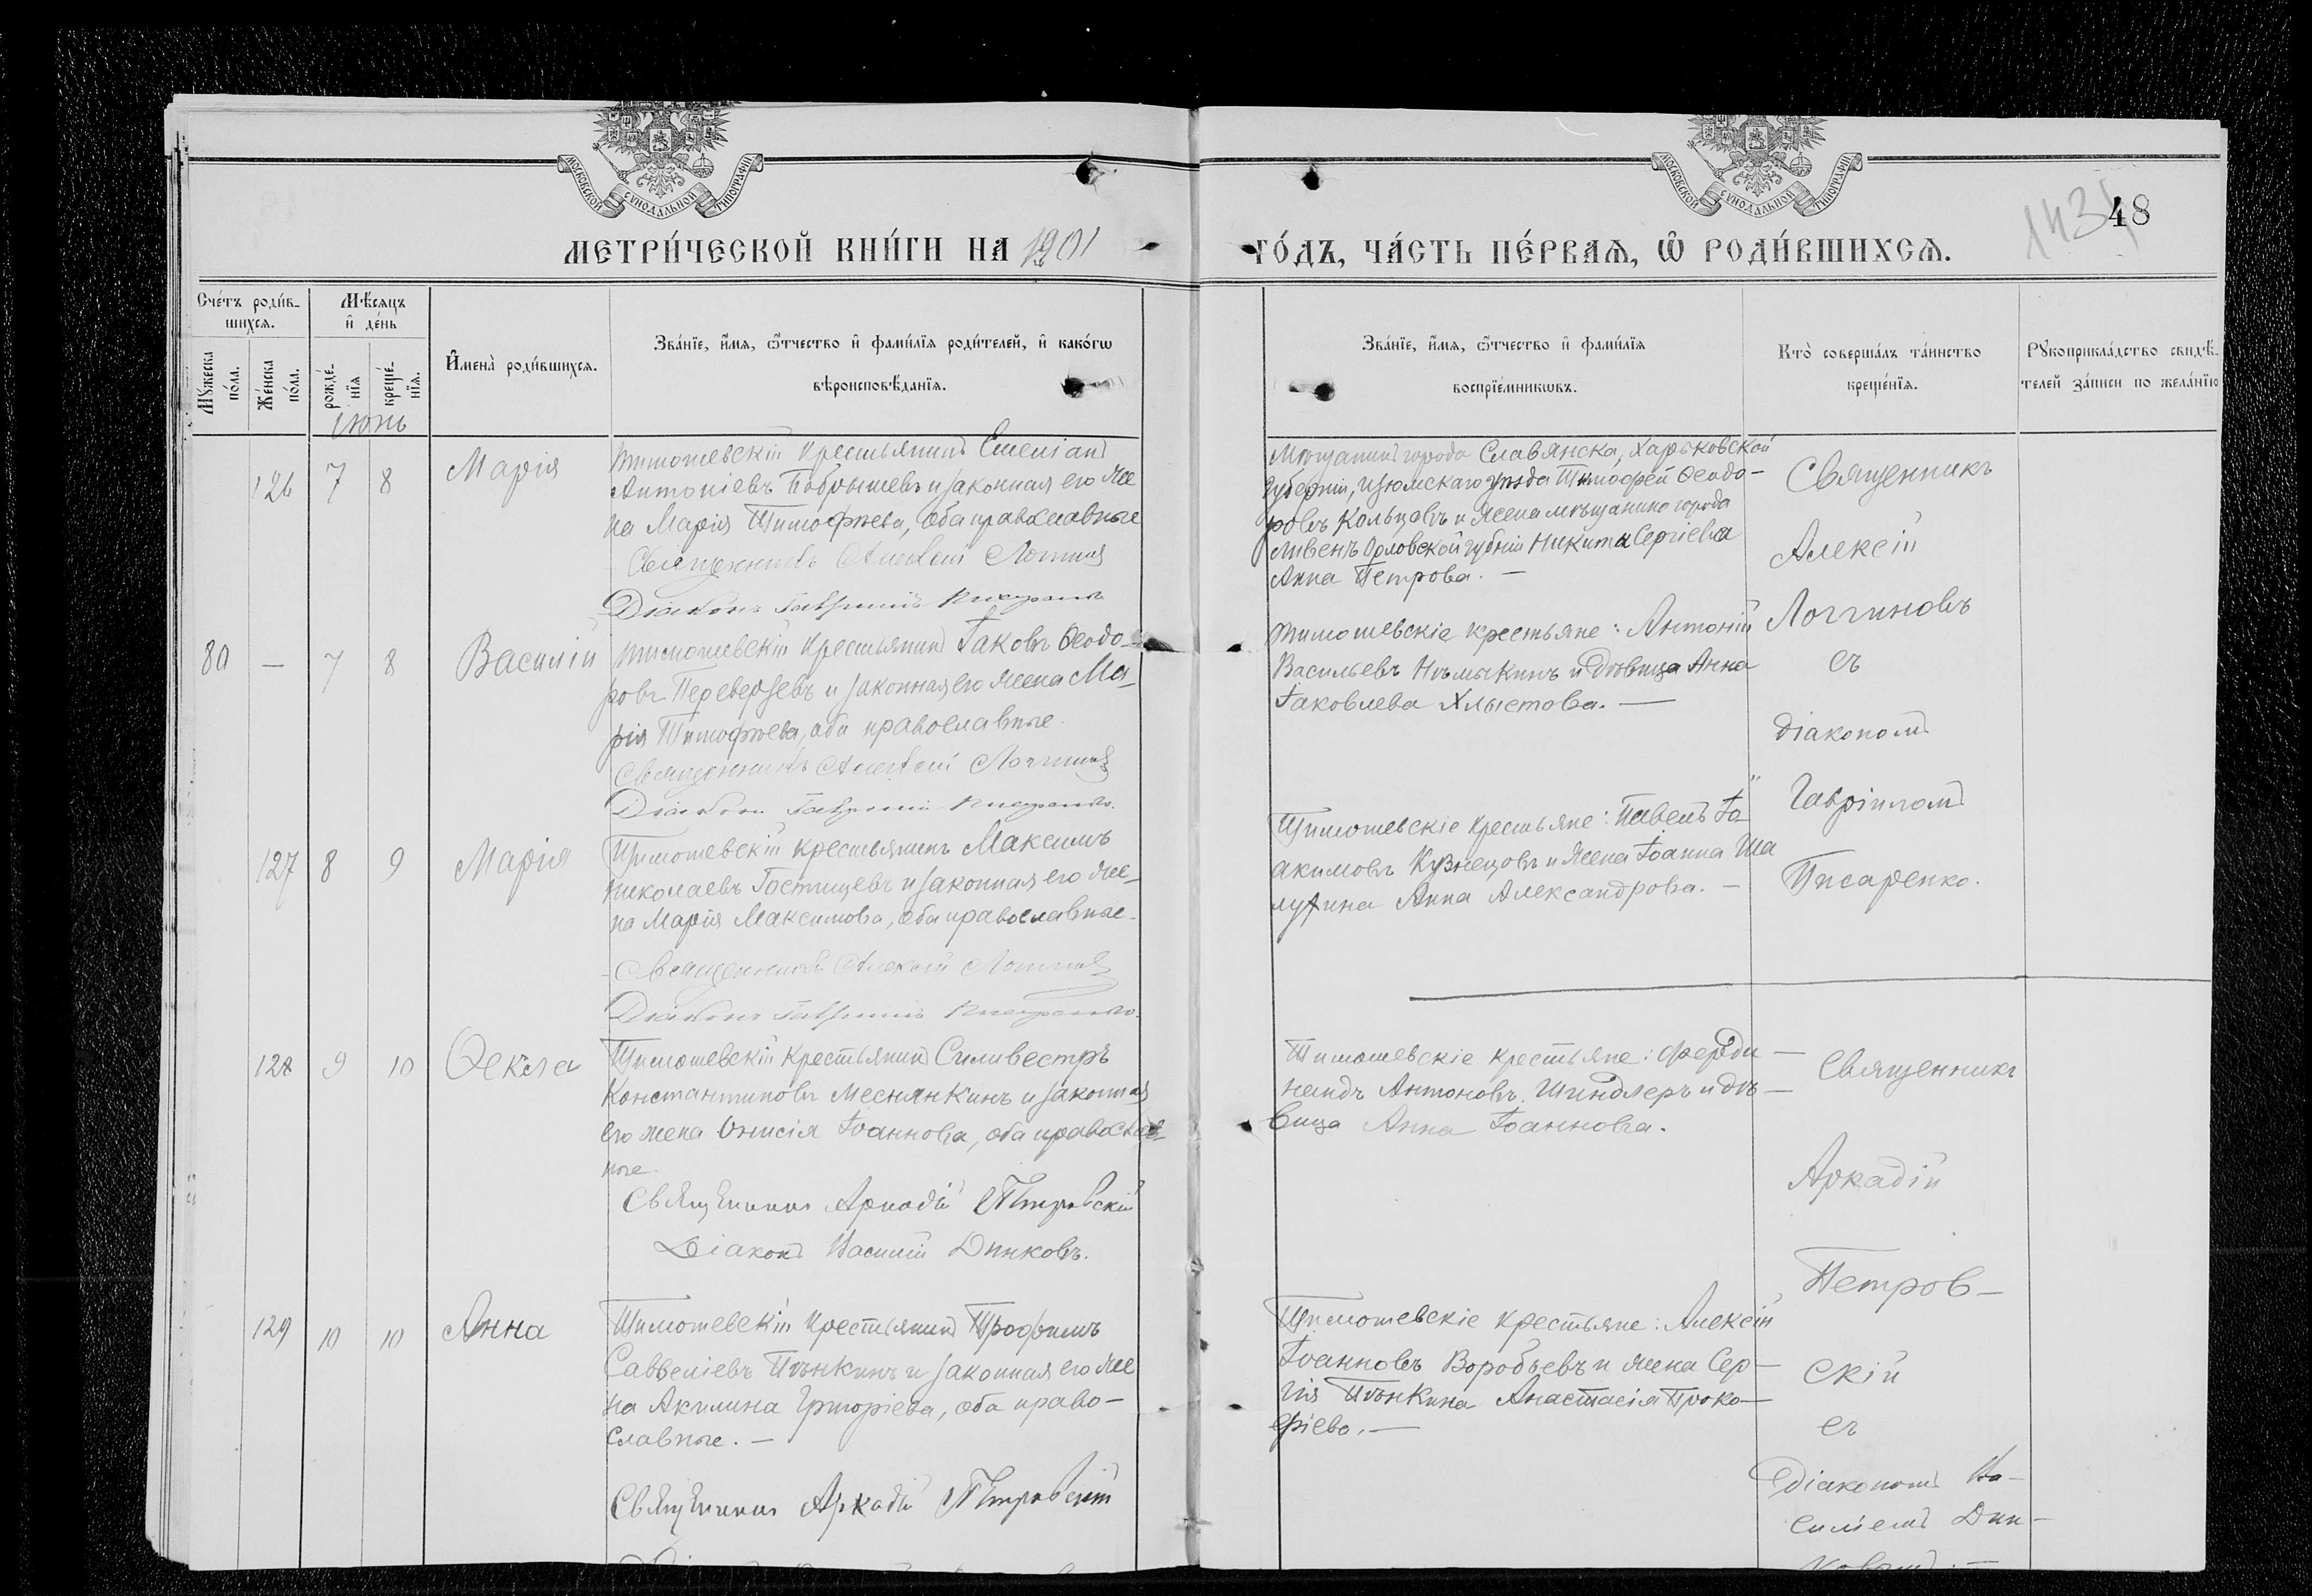 МОСКОВСКОЙ СѴНОДАЛЬНОЙ ТИПОГРАФІИ
МОСКОВСКОЙ СѴНОДАЛЬНОЙ ТИПОГРАФІИ
48
МЕТРИ́ЧЕСКОЙ КНИ́ГИ НА 1901 ГО́ДЪ, ЧА́СТЬ ПЕ́РВАѦ, Ѿ РОДИ́ВШИХСѦ.
Сче́тъ роди́в-
шихсѧ.
Мѣ́сѧцъ
и҆ де́нь
Мꙋжеска
по́ла.
Же́нска
по́ла.
рожде́-
нїѧ
креще́-
нїѧ.
И҆мена̀ роди́вшихсѧ.
Зва́нїе, и҆́мѧ, ѻ҆́тчество и҆ фами́лїѧ роди́телей, и҆ како́гѡ
вѣроисповѣ́данїѧ.
Зва́нїе, и҆́мѧ, ѻ҆́тчество и҆ фами́лїѧ
воспрїе́мникѡвъ.
Кто̀ соверша́лъ та́инство
креще́нїѧ.
Рꙋкоприкла́дство свидѣ́-
телей за́писи по жела́нїю
Іюнь
126 7 8 Марія
Тимошевскій крестьянинъ Емеліанъ
Антоніевъ Бобрышевъ и законная его же
на Марія Тимофѣева, оба православные
Священникъ Алексій
Діаконъ Гавріилъ Писаренко
Мѣщанинъ города Славянска, Харьковской
губерніи, Изюмскаго уѣзда Тимофей Ѳеодо-
ровъ Кольцовъ и жена мѣщанина города
Ливенъ Орловской губерніи Никита Сергіева
Анна Петрова. —
Священникъ
Алексій
Логгиновъ
съ
діакономъ
Гавріиломъ
Писаренко.
80 — 7 8 Василій
Тимошевскій крестьянинъ Іаковъ Ѳеодо-
ровъ Переверзевъ и законная его жена Ма-
рія Тимофѣева, оба православные
Священникъ Алексій
Діаконъ Гавріилъ Писаренко.
Тимошевскіе крестьяне: Антоній
Васильевъ Нѣмыкинъ и дѣвица Анна
Іаковлева Хлыстова. —
127 8 9 Марія
Тимошевскій крестьянинъ Максимъ
Николаевъ Гостищевъ и законная его же-
на Марія Максимова, оба православные.
Священникъ Алексій
Діаконъ Гавріилъ Писаренко.
Тимошевскіе крестьяне: Павелъ Іо-
акимовъ Кузнецовъ и жена Іоанна Ша
лухина Анна Александрова. —
128 9 10 Ѳекла
Тимошевскій крестьянинъ Сильвестръ
Константиновъ Меснянкинъ и законная
его жена Онисія Іоаннова, оба православ-
ные.
Священникъ Аркадій Петровскій
Діаконъ Василій Динковъ.
Тимошевскіе крестьяне: Ферди-
нандъ Антоновъ Шиндлеръ и дѣ-
вица Анна Іоаннова.
Священникъ
Аркадій
Петров-
скій
съ
Діакономъ Ва-
силіемъ Дин-
ковымъ. —
129 10 10 Анна
Тимошевскій крестьянинъ Трофимъ
Савеліевъ Пѣнкинъ и законная его же
на Акилина Григоріева, оба право-
славные. —
Священникъ Аркадій Петровскій
Тимошевскіе крестьяне: Алексій
Іоанновъ Воробьевъ и жена Сер-
гія Пѣнкина Анастасія Проко-
фіева. —